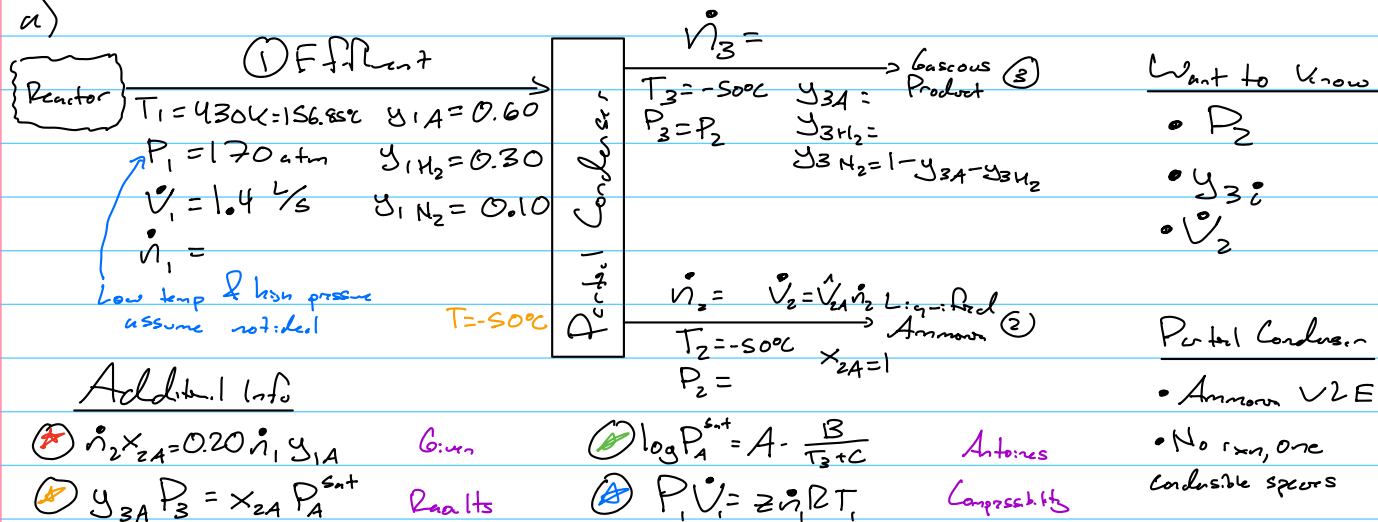 a)
Reactor
① Effluent
T₁ = 430K = 156.85°C y₁A = 0.60
P₁ = 170 atm y₁H₂ = 0.30
V̇₁ = 1.4 L/s y₁N₂ = 0.10
ṅ₁ =
Low temp & high pressure
assume not ideal
T = -50°C
Partial Condenser
ṅ₃ =
Gaseous ③
Product
T₃ = -50°C y₃A =
P₃ = P₂ y₃H₂ =
y₃N₂ = 1 - y₃A - y₃H₂
ṅ₂ = V̇₂ = V̂₂A ṅ₂ Liquified
Ammonia ②
T₂ = -50°C x₂A = 1
P₂ =
Want to Know
• P₂
• y₃i
• V̇₂
Partial Condenser
• Ammonia VLE
• No rxn, one
condensible species
Additional Info
ṅ₂x₂A = 0.20 ṅ₁ y₁A Given
y₃A P₃ = x₂A P_A^sat Raolts
log P_A^sat = A - B/(T₃+C) Antoines
P₁V̇₁ = zṅ₁RT₁ Compressibility